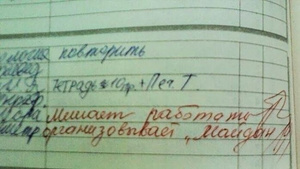 повторить
тетрадь 10р. + Печ. Т.
Мешает работать
организовывает "Майдан"!!